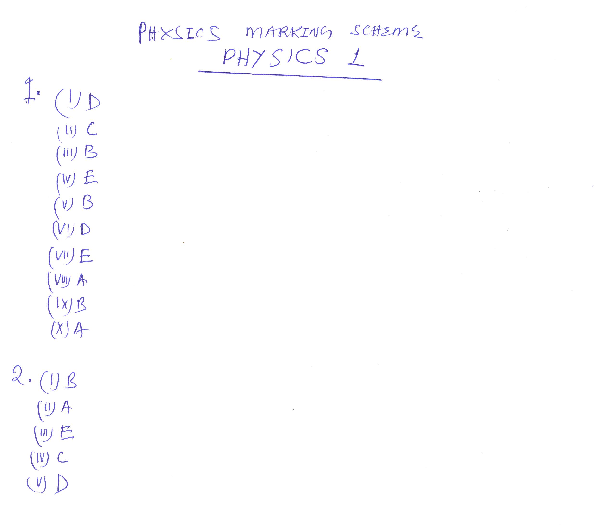 PHYSICS MARKING SCHEME
PHYSICS 1
1. (i) D
(ii) C
(iii) B
(iv) E
(v) B
(vi) D
(vii) E
(viii) A
(ix) B
(x) A
2. (i) B
(ii) A
(iii) E
(iv) C
(v) D